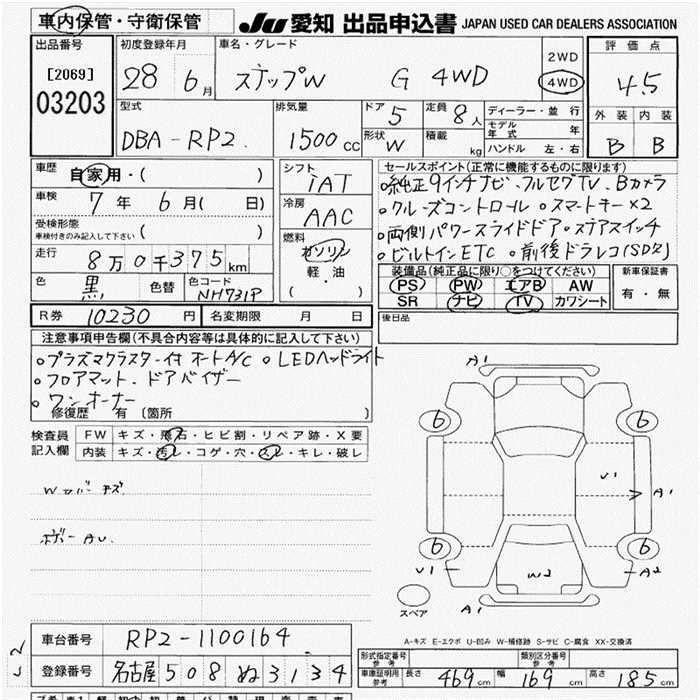 車内保管・守衛保管
JU 愛知 出品申込書 JAPAN USED CAR DEALERS ASSOCIATION
出品番号
[2069]
03203
初度登録年月
28 6月
車名・グレード
ステップW G 4WD
2WD
4WD
評価点
4.5
外装 内装
B B
型式
DBA-RP2
排気量
1500cc
ドア 5
定員 8人
形状 W
積載 kg
ディーラー・並行
モデル年式 年
ハンドル 左・右
車歴
自家用・( )
車検 7年 6月( 日)
受検形態
車検付きのみ記入して下さい ( )
走行 8万0千375km
色 黒 色替 色コード NH731P
シフト
iAT
冷房
AAC
燃料
ガソリン
軽・油
( ・ )
セールスポイント(正常に機能するものに限ります)
。純正9インチナビ.フルセグTV.Bカメラ
。クルーズコントロール 。スマートキー×2
。両側パワースライドドア 。ステアスイッチ
。ビルトインETC 。前後ドラレコ(SD欠)
装備品(純正品に限り○をつけてください)
PS PW エアB AW
SR ナビ TV カワシート
新車保証書
有・無
R券 10230円 名変期限 月 日
後日品
注意事項申告欄(不具合内容等は具体的に記入して下さい)
。プラズマクラスター付オートA/C 。LEDヘッドライト
。フロアマット.ドアバイザー
。ワンオーナー
修復歴 有〔箇所 〕
検査員
記入欄
FW キズ・飛石・ヒビ割・リペア跡・X要
内装 キズ・汚レ・コゲ・穴・スレ・キレ・破レ
Wカバーキズ
ボデーAU.
A1
6 6
U1
A1
6 6
U1 A2
W2
スペア
A1
A-キズ E-エクボ U-凹み W-補修跡 S-サビ C-腐食 XX-交換済
車台番号 RP2-1100164
登録番号 名古屋 508 ぬ 3134
型式指定番号
参考
類別区分番号
参考
車庫証明用
参考
長さ 469cm 幅 169cm 高さ 185cm